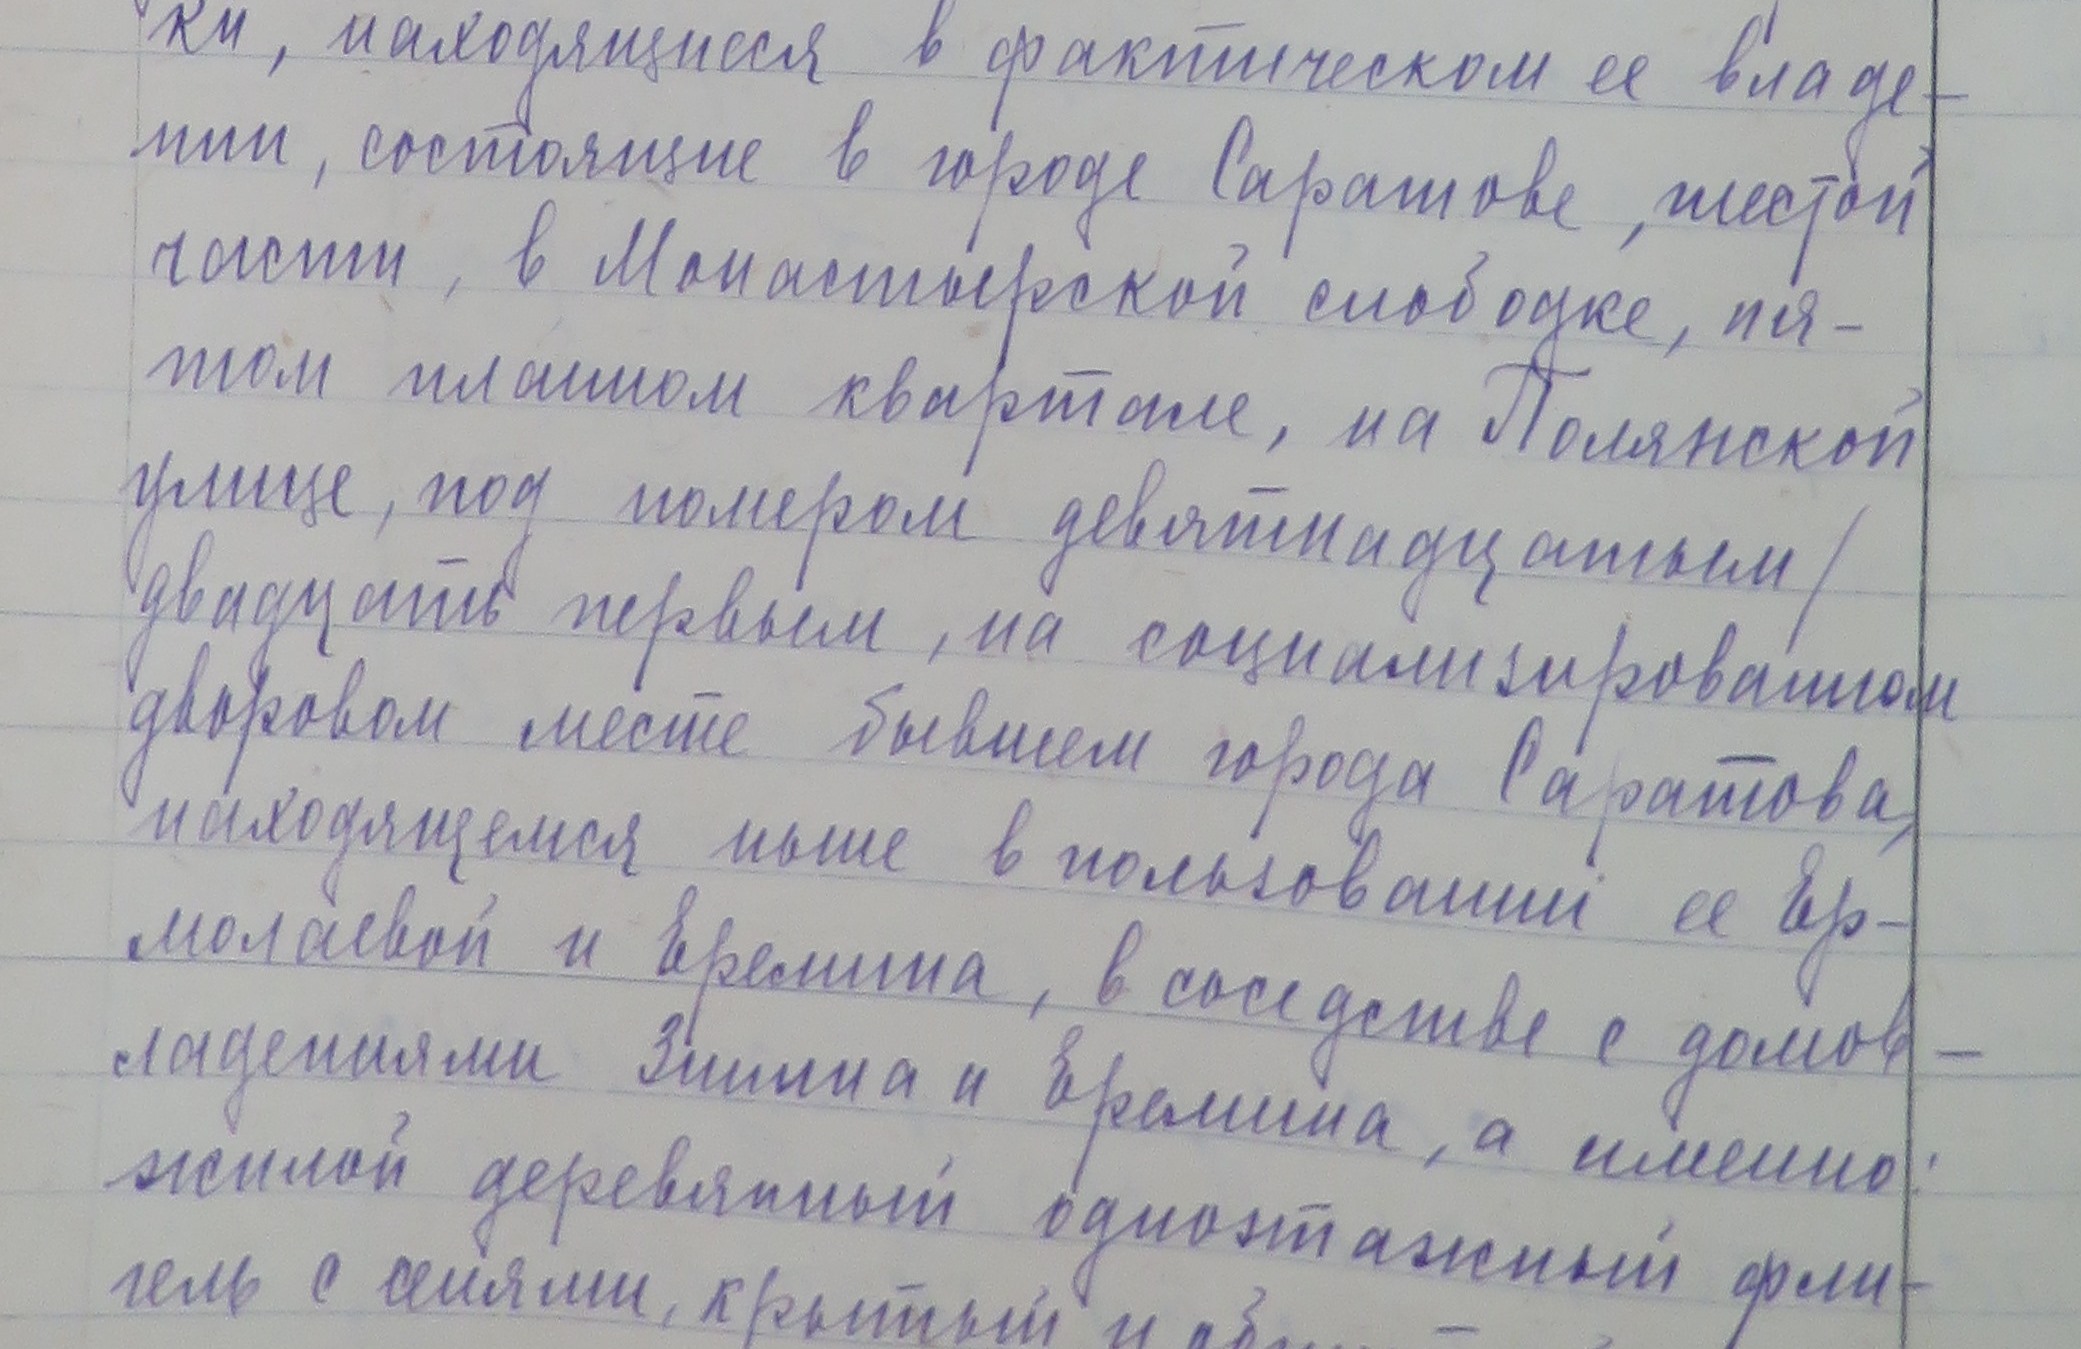 ки, находящиеся в фактическом ее владе-
нии, состоящие в городе Саратове, шестой
части, в Монастырской слободке, пя-
том планном квартале, на Полянской
улице, под номером девятнадцатым/
двадцать первым, на социализированном
дворовом месте бывшем города Саратова,
находящемся ныне в пользовании ее Ер-
молаевой и Еремина, в соседстве с домов-
ладениями Зимина и Еремина, а именно:
жилой деревянный одноэтажный фли-
гель с сенями, крытый и